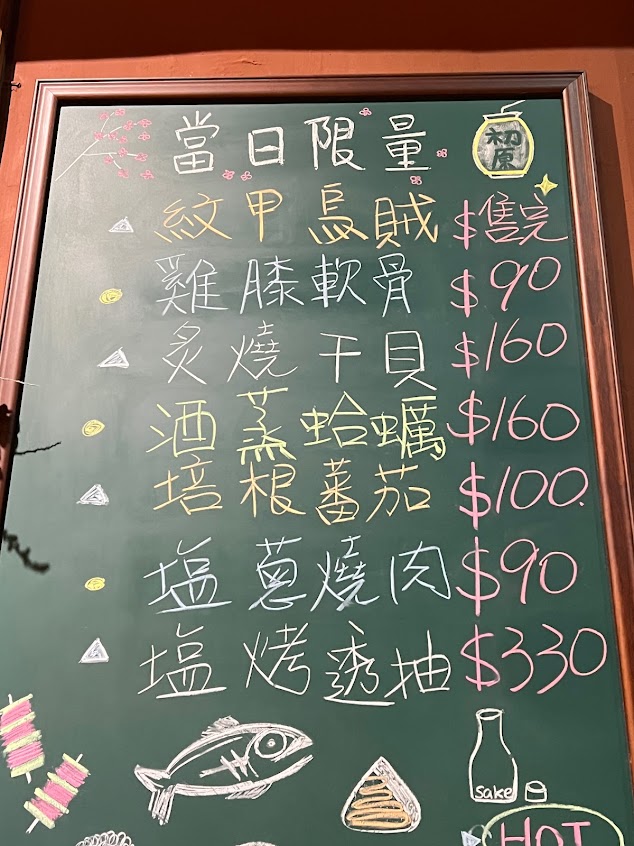 當日限量 初原
紋甲烏賊 $售完
雞膝軟骨 $90
炙燒干貝 $160
酒蒸蛤蠣 $160
培根蕃茄 $100.
塩蔥燒肉 $90
塩烤透抽 $330
sake
HOT